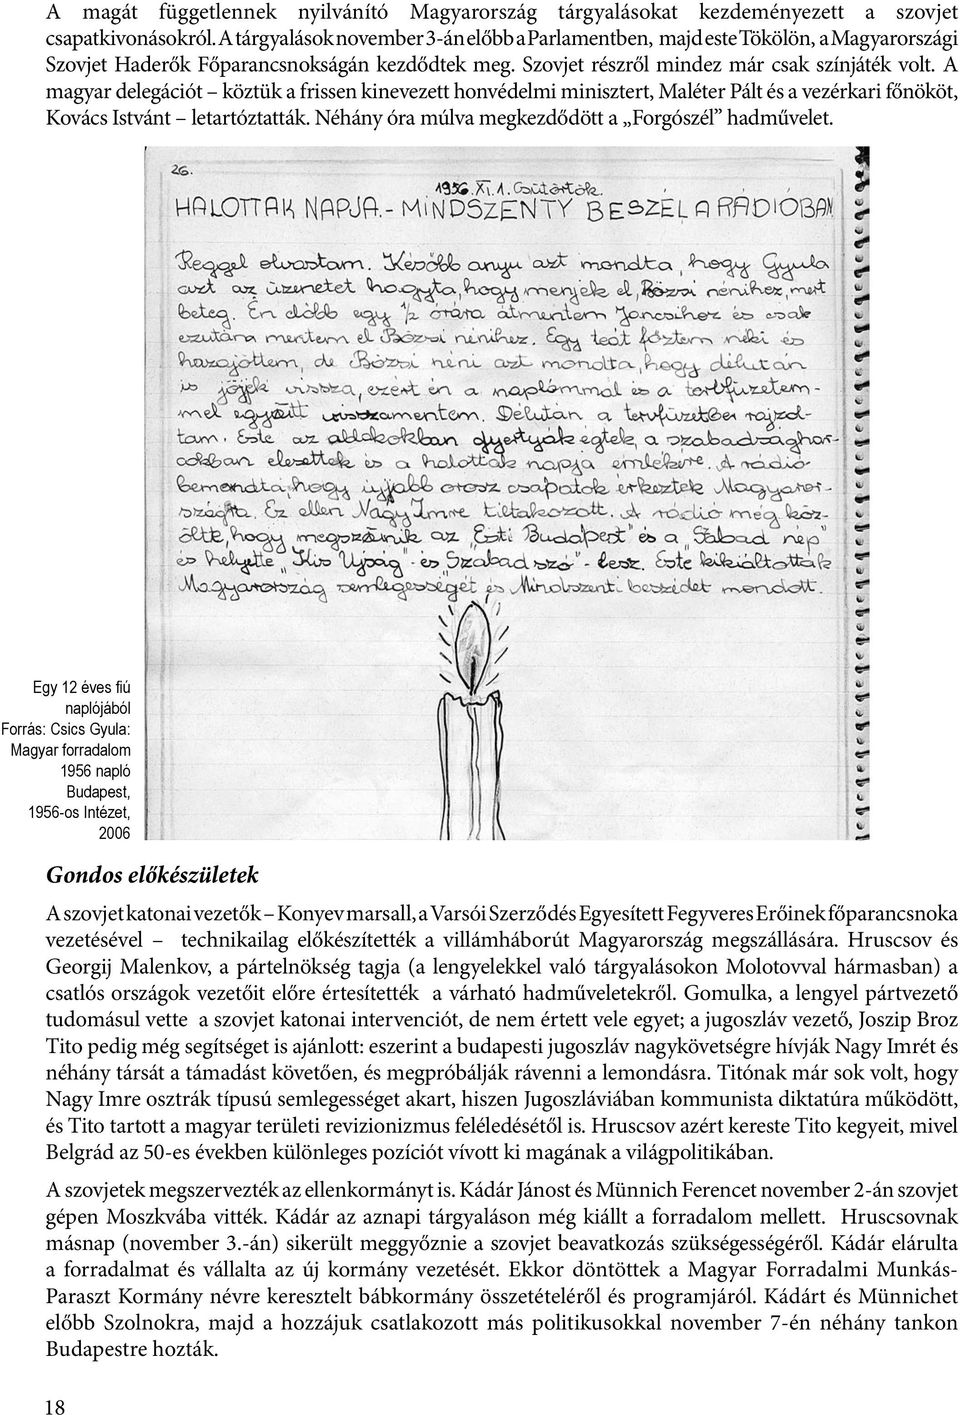 A magát függetlennek nyilvánító Magyarország tárgyalásokat kezdeményezett a szovjet
csapatkivonásokról. A tárgyalások november 3-án előbb a Parlamentben, majd este Tökölön, a Magyarországi
Szovjet Haderők Főparancsnokságán kezdődtek meg. Szovjet részről mindez már csak színjáték volt. A
magyar delegációt – köztük a frissen kinevezett honvédelmi minisztert, Maléter Pált és a vezérkari főnököt,
Kovács Istvánt – letartóztatták. Néhány óra múlva megkezdődött a „Forgószél” hadművelet.
26.
1956.XI.1.Csütörtök.
HALOTTAK NAPJA.-MINDSZENTY BESZÉL A RÁDIÓBAN
Reggel olvastam. Később anyu azt mondta, hogy Gyula
azt az üzenetet hagyta, hogy menjek el, Bözsi nénihez, mert
beteg. Én előbb egy 1/2 órára átmentem Jancsihoz és csak
ezután mentem el Bözsi nénihez. Egy teát főztem neki és
hazajöttem, de Bözsi néni azt mondta, hogy délután
is jöjjek vissza, ezért én a naplómmal és a tervfüzetem-
mel együtt visszamentem. Délután a tervfüzetbe rajzol-
tam. Este az ablakokban gyertyák égtek, a szabadsághar-
cokban elesettek és a halottak napja emlékére. A rádió-
bemondta, hogy újjabb orosz csapatok érkeztek Magyaror-
szágra. Ez ellen Nagy Imre tiltakozott. A rádió még köz-
ölte, hogy megszűnik az „Esti Budapest" és a „Szabad nép"
és helyette „Kis Ujság"-és „Szabad szó"-lesz. Este kikiáltották
Magyarország semlegességét és Mindszenti beszédet mondott.
Egy 12 éves fiú
naplójából
Forrás: Csics Gyula:
Magyar forradalom
1956 napló
Budapest,
1956-os Intézet,
2006
Gondos előkészületek
A szovjet katonai vezetők – Konyev marsall, a Varsói Szerződés Egyesített Fegyveres Erőinek főparancsnoka
vezetésével – technikailag előkészítették a villámháborút Magyarország megszállására. Hruscsov és
Georgij Malenkov, a pártelnökség tagja (a lengyelekkel való tárgyalásokon Molotovval hármasban) a
csatlós országok vezetőit előre értesítették a várható hadműveletekről. Gomulka, a lengyel pártvezető
tudomásul vette a szovjet katonai intervenciót, de nem értett vele egyet; a jugoszláv vezető, Joszip Broz
Tito pedig még segítséget is ajánlott: eszerint a budapesti jugoszláv nagykövetségre hívják Nagy Imrét és
néhány társát a támadást követően, és megpróbálják rávenni a lemondásra. Titónak már sok volt, hogy
Nagy Imre osztrák típusú semlegességet akart, hiszen Jugoszláviában kommunista diktatúra működött,
és Tito tartott a magyar területi revizionizmus feléledésétől is. Hruscsov azért kereste Tito kegyeit, mivel
Belgrád az 50-es években különleges pozíciót vívott ki magának a világpolitikában.
A szovjetek megszervezték az ellenkormányt is. Kádár Jánost és Münnich Ferencet november 2-án szovjet
gépen Moszkvába vitték. Kádár az aznapi tárgyaláson még kiállt a forradalom mellett. Hruscsovnak
másnap (november 3.-án) sikerült meggyőznie a szovjet beavatkozás szükségességéről. Kádár elárulta
a forradalmat és vállalta az új kormány vezetését. Ekkor döntöttek a Magyar Forradalmi Munkás-
Paraszt Kormány névre keresztelt bábkormány összetételéről és programjáról. Kádárt és Münnichet
előbb Szolnokra, majd a hozzájuk csatlakozott más politikusokkal november 7-én néhány tankon
Budapestre hozták.
18